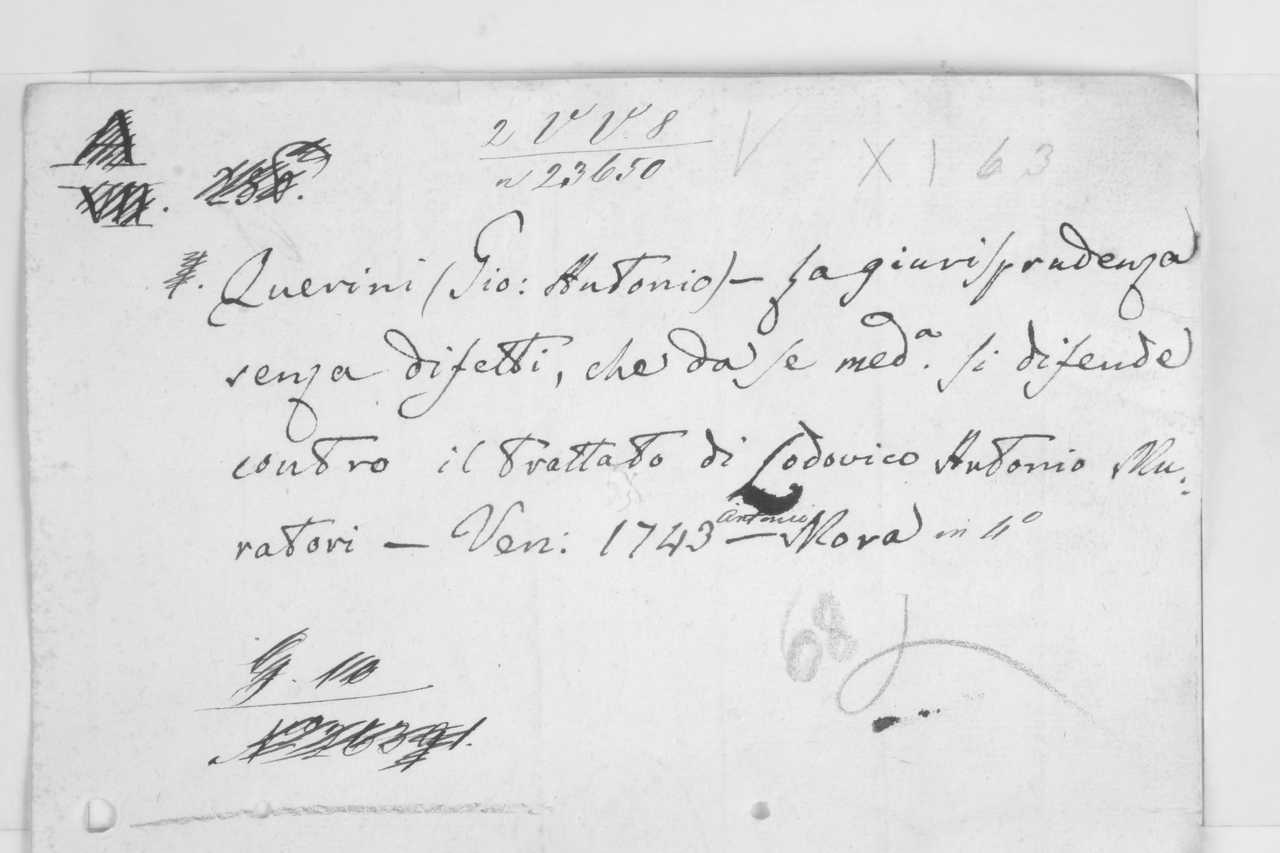 2 V V. 8
n 23650
X I 63
Querini (Gio: Antonio) — La giurisprudenza
senza difetti, che da se med.ª si difende
contro il trattato di Lodovico Antonio Mu-
ratori — Ven: 1743 — Antonio Mora in 4º
G. 110
68